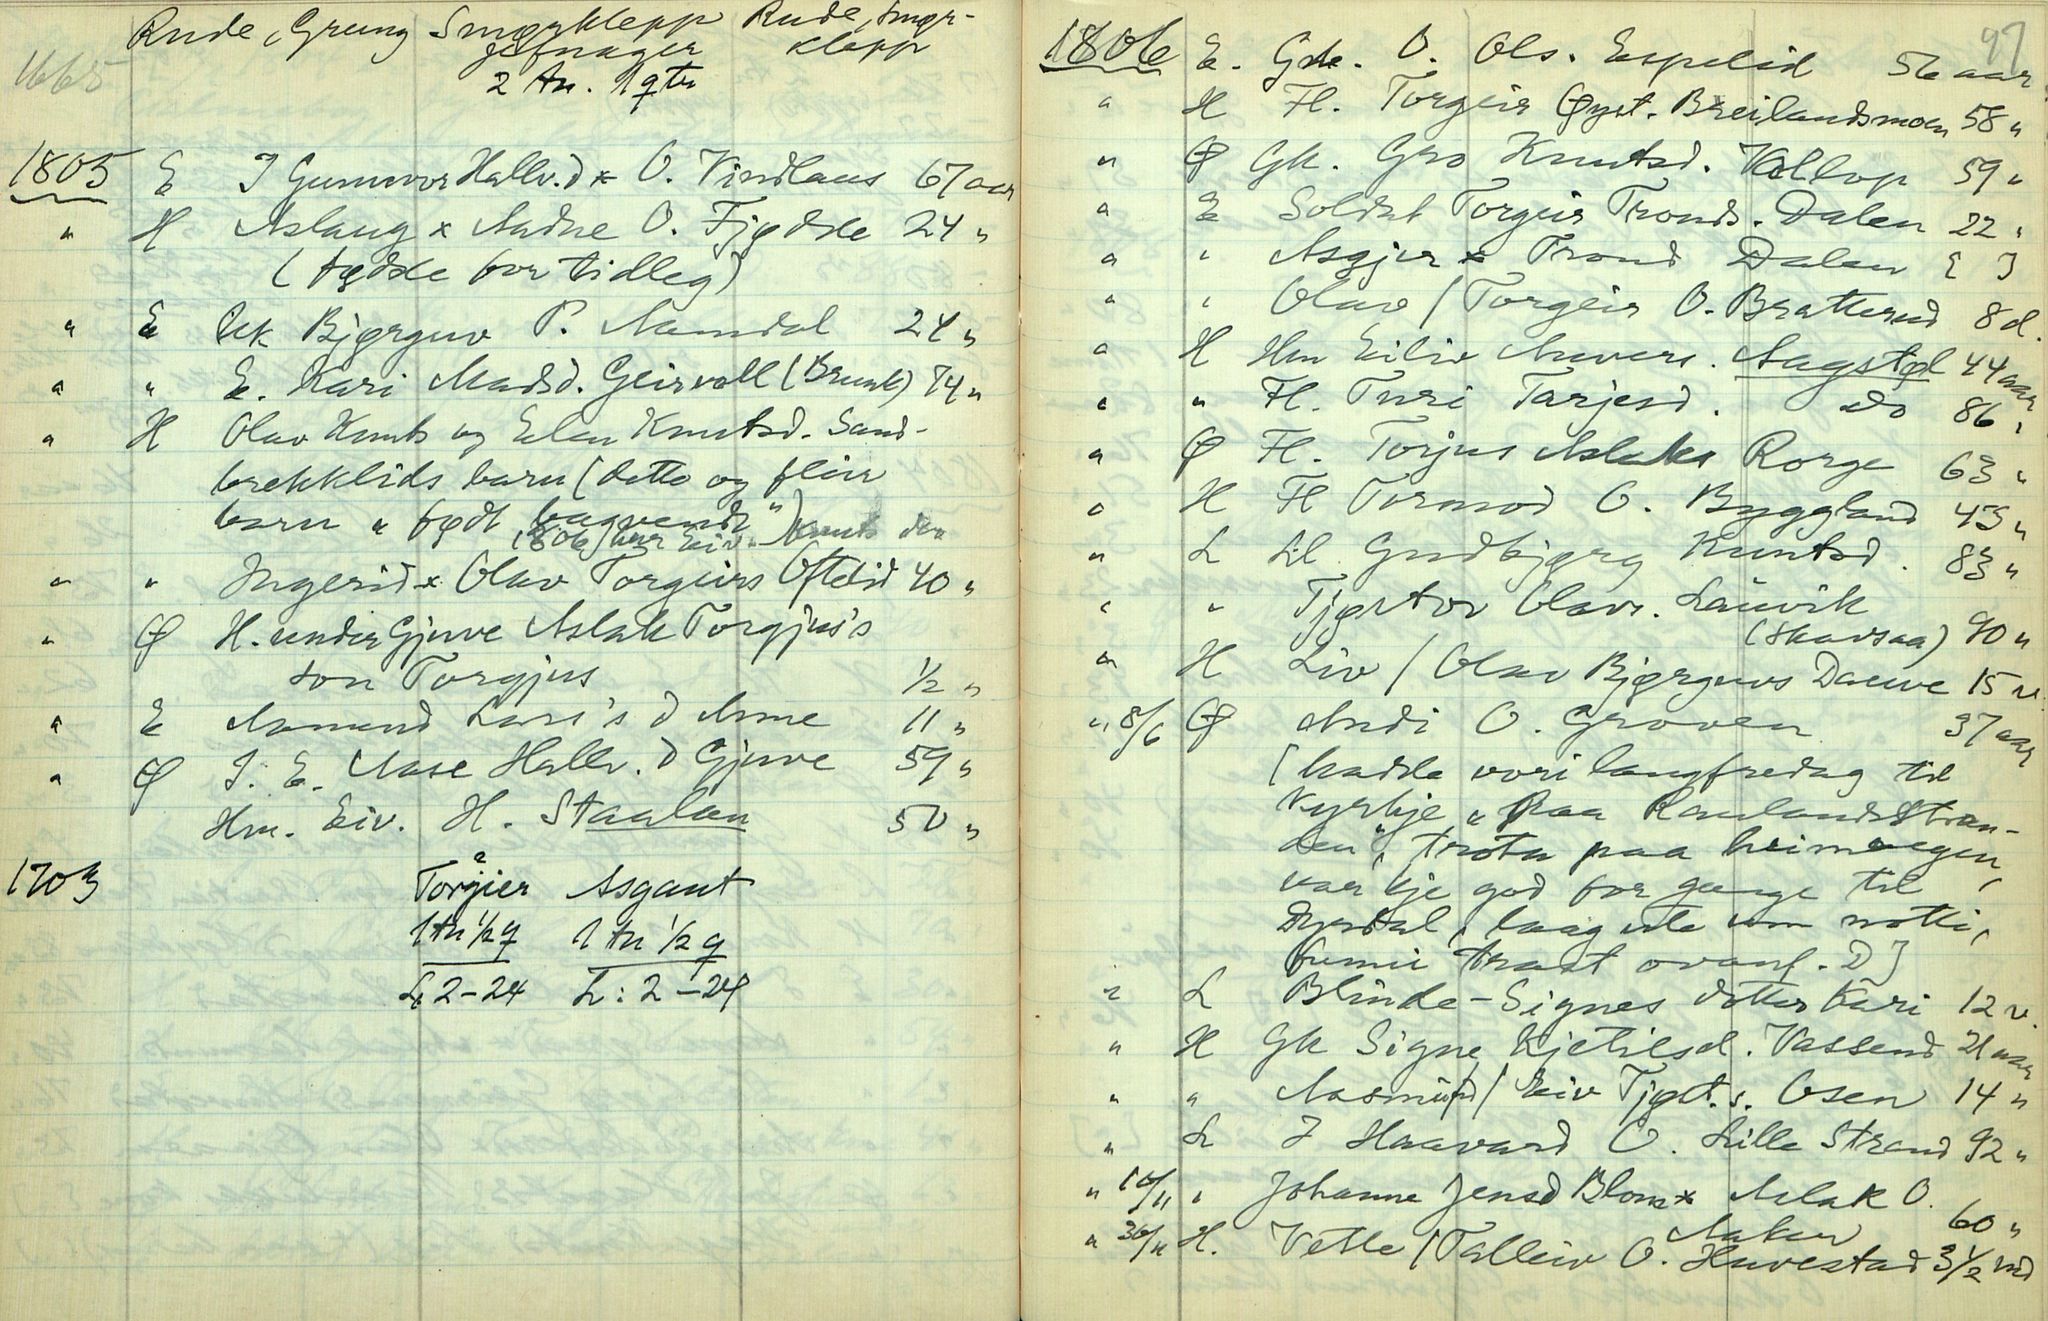 Rude, Grung Smørklepp Rude, Smør-
jefnager klepp
1665 2 tn. 1 qtr
1805 E I Gunnvor Hallv.d x O. Vindlaus 67 aar
" H Aslaug x Aadne O. Fjødde 24 "
(fødde for tidleg)
" E Bjørguv P. Aamdal 24 "
" " E. Kari Madsd. Geirvoll (Brunk) 74 "
" H Olav Knuts og Eilen Knutsd. Sand-
brekklids barn (dette og fleir
barn " født bagvendt")
" " Ingerid x Olav Torgeirs Oftelid 40 "
" Ø H. under Gjuve Aslak Torgjus's
son Torgjus ½ "
" E Aamund Lars's d Anne 11 "
" Ø I. E. Aase Hallv. d Gjuve 59 "
Hm. Eiv. H. Staalen 50 "
1703 Torgier Asgaut
1 tn ½ q 1 tn ½ q
L 2-24 L: 2-24
97
1806 E. Gdr. O. Ols. Espelid 56 aar
" H Fl. Torgeir Øyst. Breilandsmoen 58 "
" Ø Gk. Gro Knutsd. Kollop 59 "
" E Soldat Torgeir Tronds. Dalen 22 "
" " Asgjer x Trond Dalen [ ]
" " Olav / Torgeir O. Bratterud 8 d.
" H Hm Eiliv Anvers. Aagstøl 44 aar
" " Fl. Turi Tarjesd. do 86 "
" Ø Fl. Torjus Aslaks Rorge 63 "
" H Fl Tormod O. Byggland 43 "
" L Ll Gudbjørg Knutsd. 83 "
" " Tjøstov Olavs. Lauvik
(Skavsaa) 90 "
" H Liv / Olav Bjørguvs Dauve 15 v.
" 8/6 Ø Andi O. Groven 37 aar
[hadde vori langfredag til
kyrkje " paa Raulandsstran-
den", trøtn paa heimvegen,
var kje god for gange til
Dyrdal, laag ute um notti,
funnii trast ovanf. D]
" L Blinde-Signes dotter Kari 12 v.
" H Gk Signe Kjetilsd. Vassend 21 aar
" " Aasmund / Eiv Tjøst.s. Osen 14 "
" L I Haavard O. Lille Strand 92 "
" 16/11 " Johanne Jensd Blom x Aslak O.
Naker 60 "
" 30/11 H. Vetle / Talleiv O. Huvestad 3 ½ md